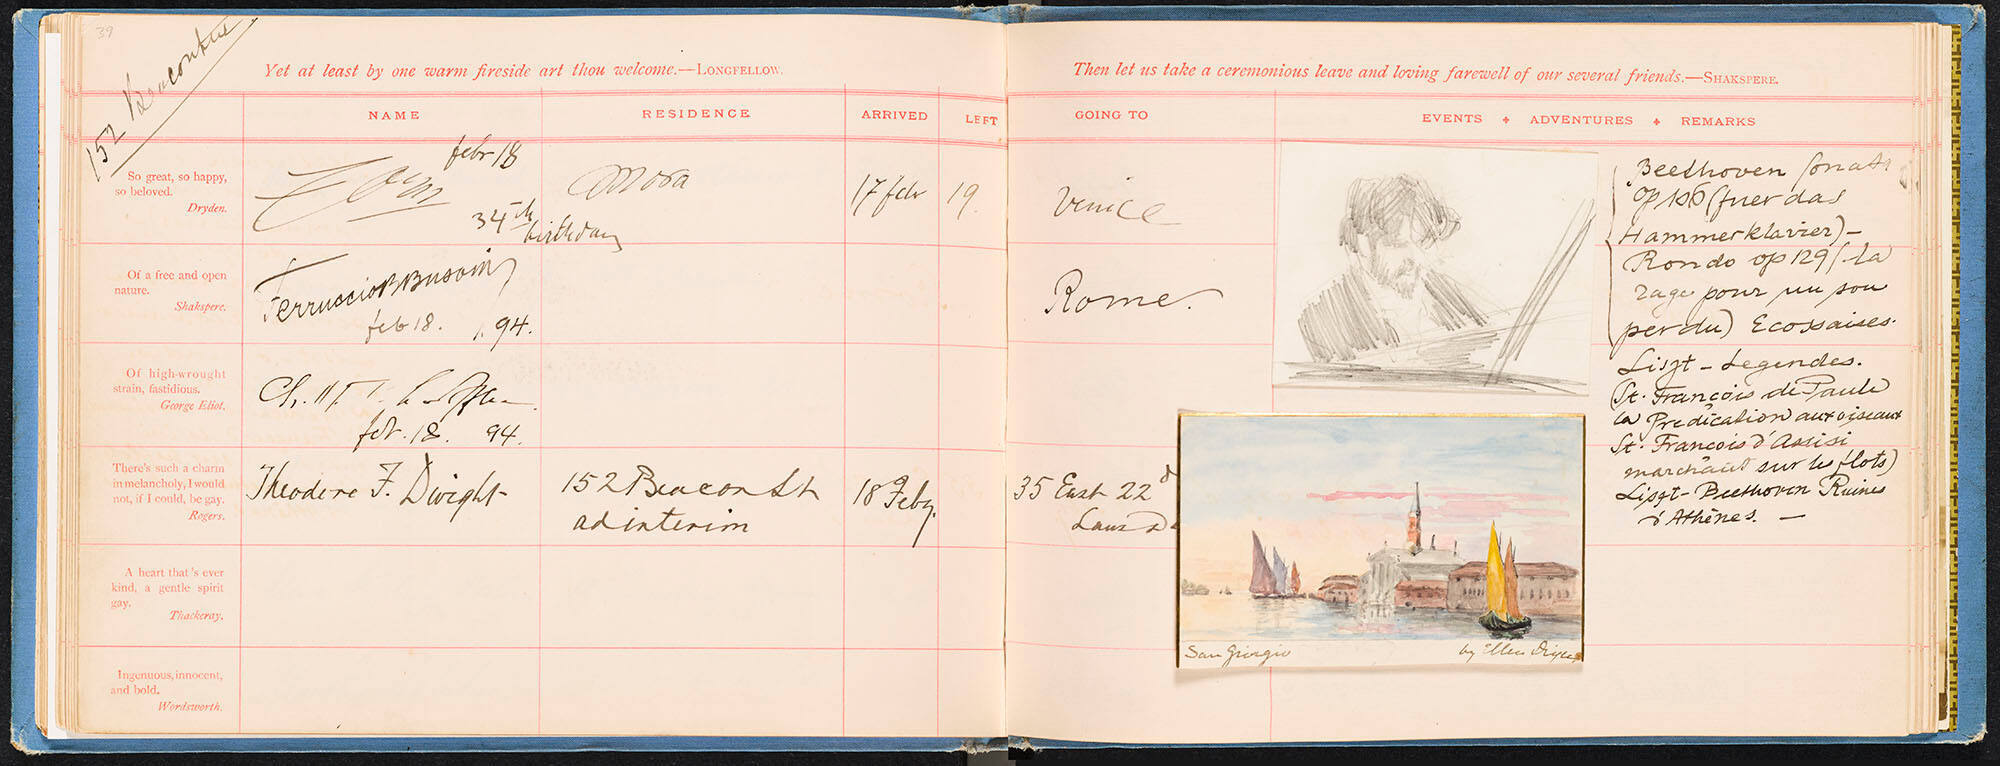 39
152 Beacon
Yet at least by one warm fireside art thou welcome.—LONGFELLOW.
NAME
RESIDENCE
ARRIVED
LEFT
So great, so happy,
so beloved.
Dryden.
Zorn
febr 18
34th
birthday
Mora
17 febr
19.
Of a free and open
nature.
Shakspere.
Ferruccio B Busoni
feb 18. 94.
Of high-wrought
strain, fastidious.
George Eliot.
feb. 18. 94.
There's such a charm
in melancholy, I would
not, if I could, be gay.
Rogers.
Theodore F. Dwight
152 Beacon St
ad interim
18 Feby.
A heart that's ever
kind, a gentle spirit
gay.
Thackeray.
Ingenuous, innocent,
and bold.
Wordsworth.
Then let us take a ceremonious leave and loving farewell of our several friends.—SHAKSPERE.
GOING TO
EVENTS + ADVENTURES + REMARKS
Venice
Rome.
35 East 22d
Beethoven Sonata
Op 106 (fuer das
Hammerklavier) –
Rondo op 129 (la
rage pour un sou
perdu) Ecossaises.
Liszt – Legendes.
(St. François de Paule
la Predication aux oiseaux
St. François d'Assisi
marchant sur les flots)
Liszt – Beethoven Ruines
d'Athènes. –
San Giorgio
by Ellen